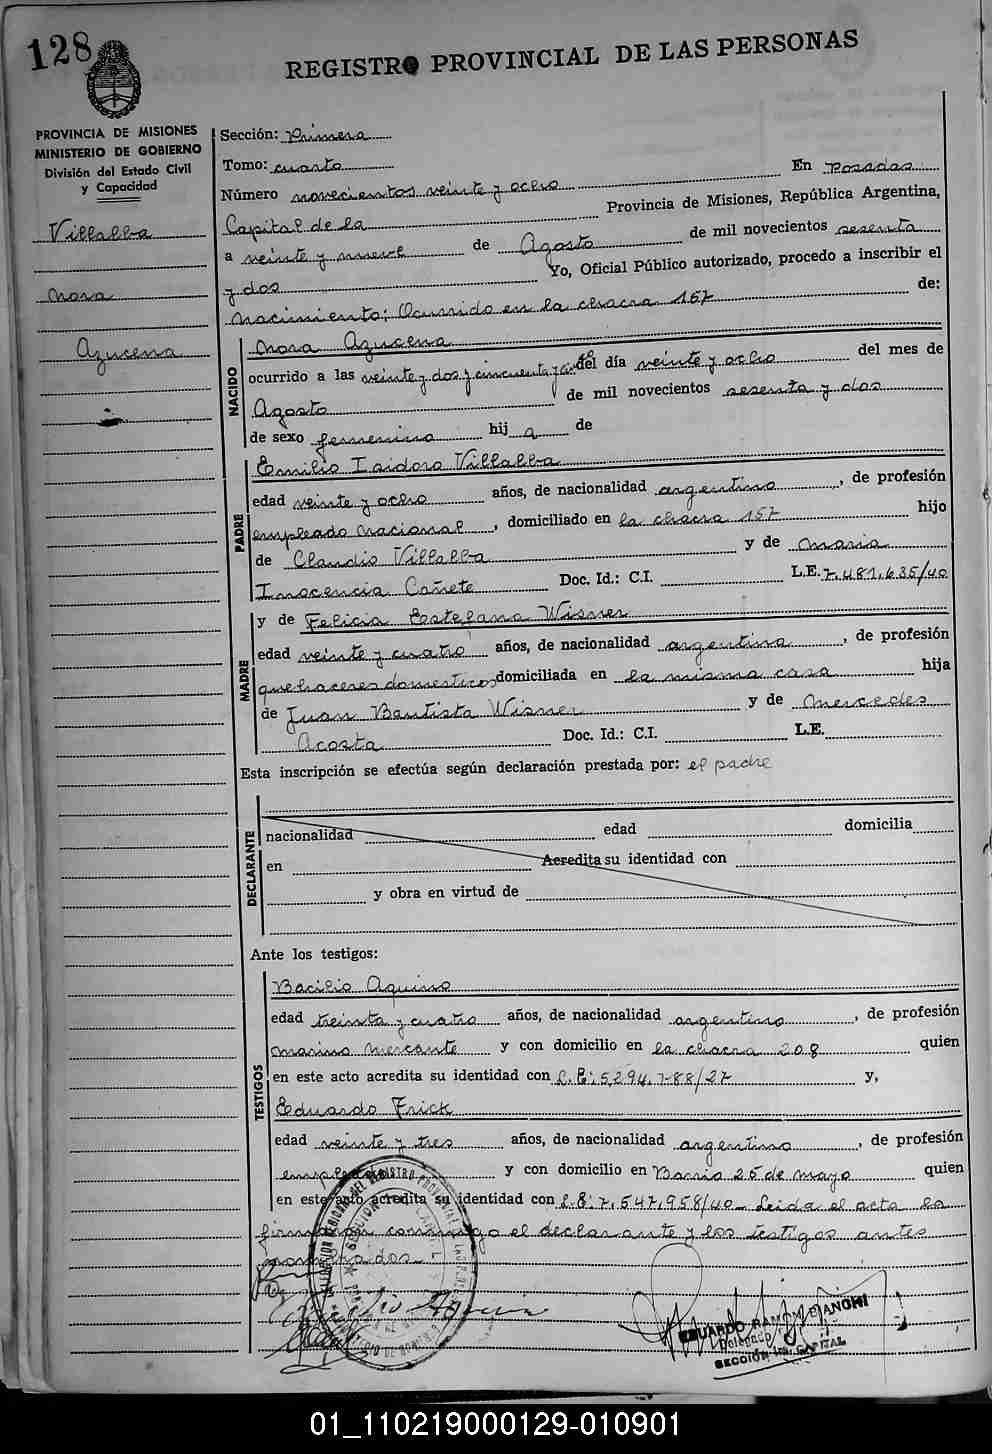 128
REGISTRO PROVINCIAL DE LAS PERSONAS
PROVINCIA DE MISIONES
MINISTERIO DE GOBIERNO
División del Estado Civil
y Capacidad
Villalba
Nora
Azucena
Sección: Primera
Tomo: cuarto En Posadas
Número novecientos veinte y ocho
Capital de la Provincia de Misiones, República Argentina,
a veinte y nueve de Agosto de mil novecientos sesenta
y dos Yo, Oficial Público autorizado, procedo a inscribir el
Nacimiento: Ocurrido en la chacra 157 de:
NACIDO
Nora Azucena
ocurrido a las veinte y dos y cincuenta y del día veinte y ocho del mes de
Agosto de mil novecientos sesenta y dos
de sexo femenino hij a de
PADRE
Emilio Isidoro Villalba
edad veinte y ocho años, de nacionalidad argentino, de profesión
empleado nacional, domiciliado en la chacra 157 hijo
de Claudio Villalba y de Maria
Inocencia Cañete Doc. Id.: C.I. L.E. 7.481.635/40
MADRE
y de Felicia Estefana Wisner
edad veinte y cuatro años, de nacionalidad argentina, de profesión
quehaceres domesticos domiciliada en la misma casa hija
de Juan Bautista Wisner y de Mercedes
Acosta Doc. Id.: C.I. L.E.
Esta inscripción se efectúa según declaración prestada por: el padre
DECLARANTE
nacionalidad edad domicilia
en Acredita su identidad con
y obra en virtud de
Ante los testigos:
TESTIGOS
Bacilio Aquino
edad treinta y cuatro años, de nacionalidad argentino, de profesión
marino mercante y con domicilio en la chacra 208 quien
en este acto acredita su identidad con L.E: 5.294.788/27 y,
Eduardo Frick
edad veinte y tres años, de nacionalidad argentino, de profesión
y con domicilio en Barrio 25 de mayo quien
en este acto acredita su identidad con L.E: 7.547.958/40 - Leida el acta la
firmaron conmigo el declarante y los testigos antes
nombrados.-
EDUARDO RAMON BIANCHI
Delegado
SECCIÓN 1ra. CAPITAL
01_110219000129-010901